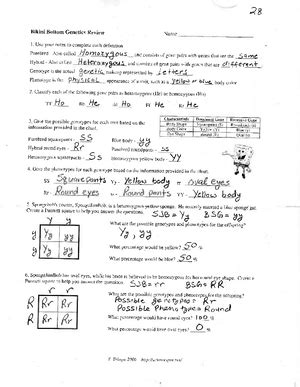 28
Bikini Bottom Genetics Review Name
1. Use your notes to complete each definition.
Purebred - Also called Homozygous and consists of gene pairs with genes that are the same
Hybrid - Also called Heterozygous and consists of gene pairs with genes that are different
Genotype is the actual genetic makeup represented by Letters
Phenotype is the Physical appearance of a trait, such as a Yellow or blue body color
2. Classify each of the following gene pairs as heterozygous (He) or homozygous (Ho)
Ho He Ho He Ho He
3. Give the possible genotypes for each item based on the information provided in the chart.
Characteristics Dominant Gene Recessive Gene
Body Shape Squarepants (S) Roundpants (s)
Body Color Yellow (Y) Blue (y)
Eye Shape Round (R) Oval (r)
Purebred squarepants - SS Blue body - yy
Hybrid round eyes - Rr Purebred roundpants - ss
Heterozygous squarepants - Ss Homozygous yellow body - YY
4. Give the phenotypes for each genotype based on the information provided in the chart.
Squarepants Yellow body Oval eyes
Round eyes Round pants Yellow body
5. SJB = Yy BSG = yy
Create a Punnett square to help you answer the questions.
What are the possible genotypes and phenotypes for the offspring?
Yy, yy
Y y
y Yy yy
y Yy yy
What percentage would be yellow? 50 %
What percentage would be blue? 50 %
SJB = rr BSG = RR
What are the possible genotypes and phenotypes for the offspring?
Possible Genotypes = Rr
Possible Phenotypes = Round
r r
R Rr Rr
R Rr Rr
What percentage would have round eyes? 100 %
What percentage would have oval eyes? 0 %